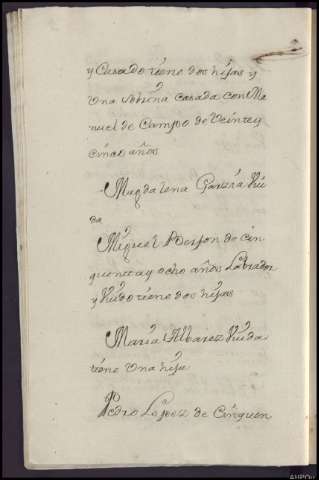 y Casado tiene dos hijas y
Una sobrina casada con Ma
nuel de Campo de Veinte y
cinco años
Magdalena Garzia Viu
da
Miguel de cin
quenta y ocho años Labrador
y Viudo tiene dos hijas
Maria Albarez Viuda
tiene Una hija
Pedro Lopez de Cinquen